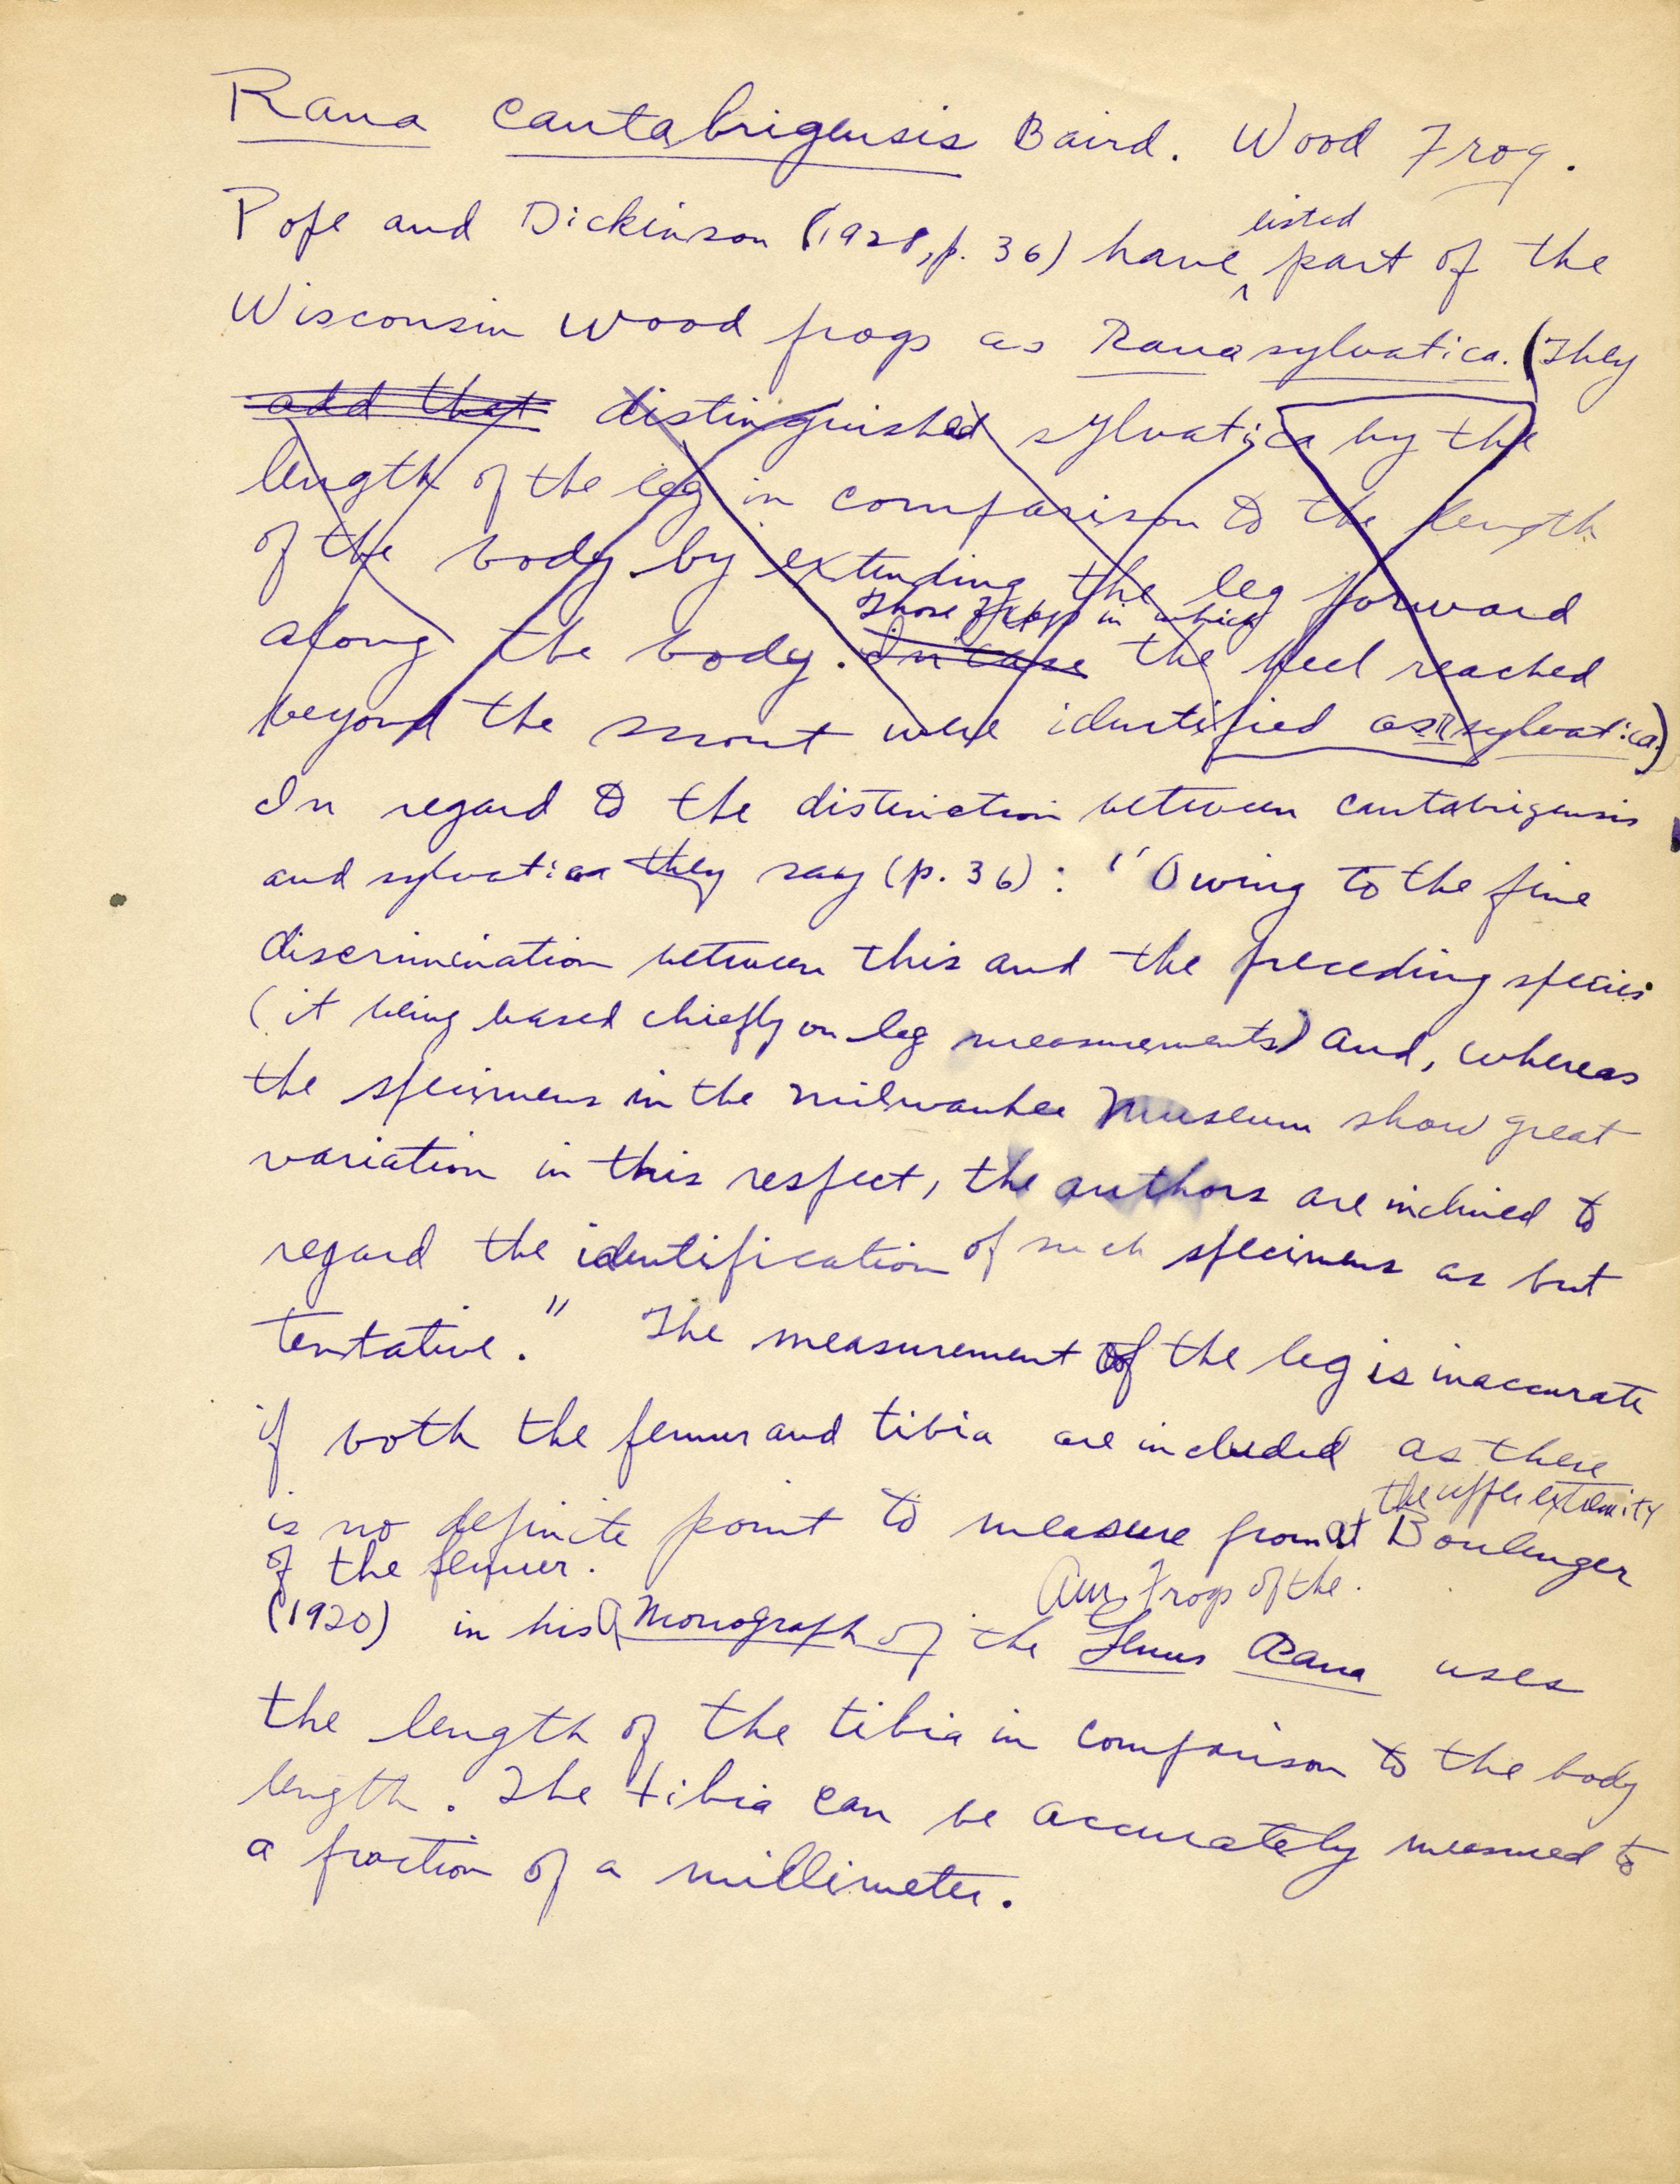 Rana cantabrigensis Baird. Wood Frog.
listed
Pope and Dickinson (1928, p. 36) have ^ part of the
Wisconsin wood frogs as Rana sylvatica. (They
add that distinguished sylvatica by the
length of the leg in comparison to the length
of the body by extending the leg forward
Those frogs in which
along the body. In case the heel reached
beyond the snout were identified as R sylvatica.)
In regard to the distinction between cantabrigensis
and sylvatica they say (p. 36): "Owing to the fine
discrimination between this and the preceding species
(it being based chiefly on leg measurements) and, whereas
the specimens in the Milwaukee Museum show great
variation in this respect, the authors are inclined to
regard the identification of such specimens as but
tentative." The measurement of the leg is inaccurate
if both the femur and tibia are included as there
the upper extremity
is no definite point to measure from at Boulenger
of the femur.
Am. Frogs of the
(1920) in his A Monograph of the Genus Rana uses
the length of the tibia in comparison to the body
length. The tibia can be accurately measured to
a fraction of a millimeter.